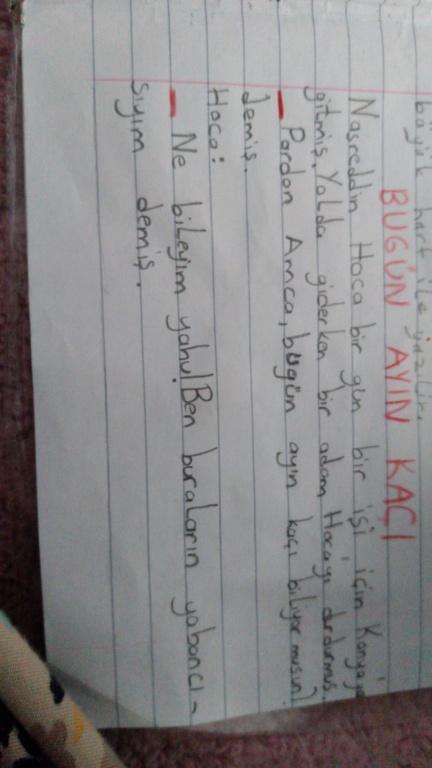 büyük harf ile yazılır.
BUGÜN AYIN KAÇI
Nasreddin Hoca bir gün bir işi için Konyaya
gitmiş. Yolda giderken bir adam Hocayı durdurmuş.
- Pardon Amca, bugün ayın kaçı biliyor musun?
demiş.
Hoca:
- Ne bileyim yahu! Ben buraların yabancı-
sıyım demiş.